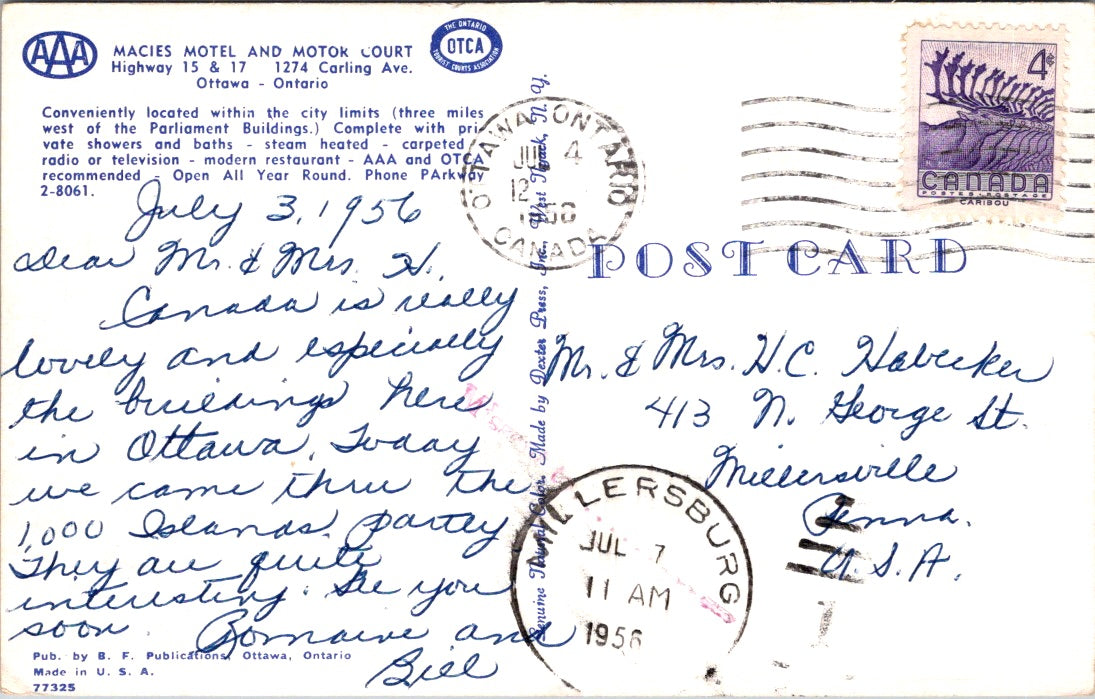 AAA
MACIES MOTEL AND MOTOR COURT
Highway 15 & 17 1274 Carling Ave.
Ottawa - Ontario
THE ONTARIO
OTCA
TOURIST COURTS ASSOCIATION
Conveniently located within the city limits (three miles
west of the Parliament Buildings.) Complete with pri-
vate showers and baths - steam heated - carpeted
radio or television - modern restaurant - AAA and OTCA
recommended - Open All Year Round. Phone PArkway
2-8061.
July 3, 1956
Dear Mr. & Mrs. H.,
Canada is really
lovely and especially
the buildings here
in Ottawa. Today
we came thru the
1,000 Islands partly
They are quite
interesting. See you
soon
Romaine and
Bill
Pub. by B. F. Publications, Ottawa, Ontario
Made in U. S. A.
77325
Genuine Natural Color. Made by Dexter Press, Inc., West Nyack, N. Y.
OTTAWA ONTARIO
JUL 4
12
1956
CANADA
4¢
CANADA
POSTES-POSTAGE
CARIBOU
POST CARD
Mr. & Mrs. H.C. Habecker
413 N. George St.
Millersville
Penna.
U.S.A.
MILLERSBURG
JUL 7
11 AM
1956
1